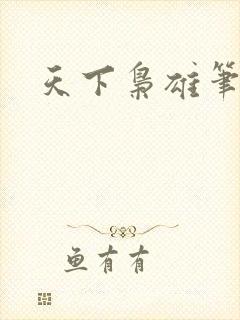 天下梟雄筆
鱼有有